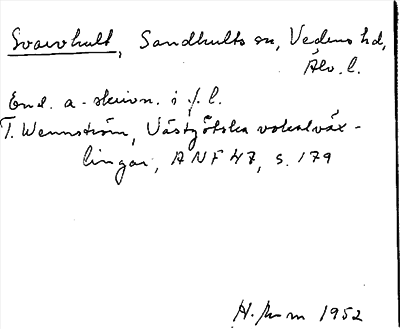 Svarvhult, Sandhults sn, Vedens hd,
Älv. l.
End. a-skrivn. i f. l.
T. Wennström, Västgötska vokalväx-
lingar, ANF 47, s. 179
H. 1952